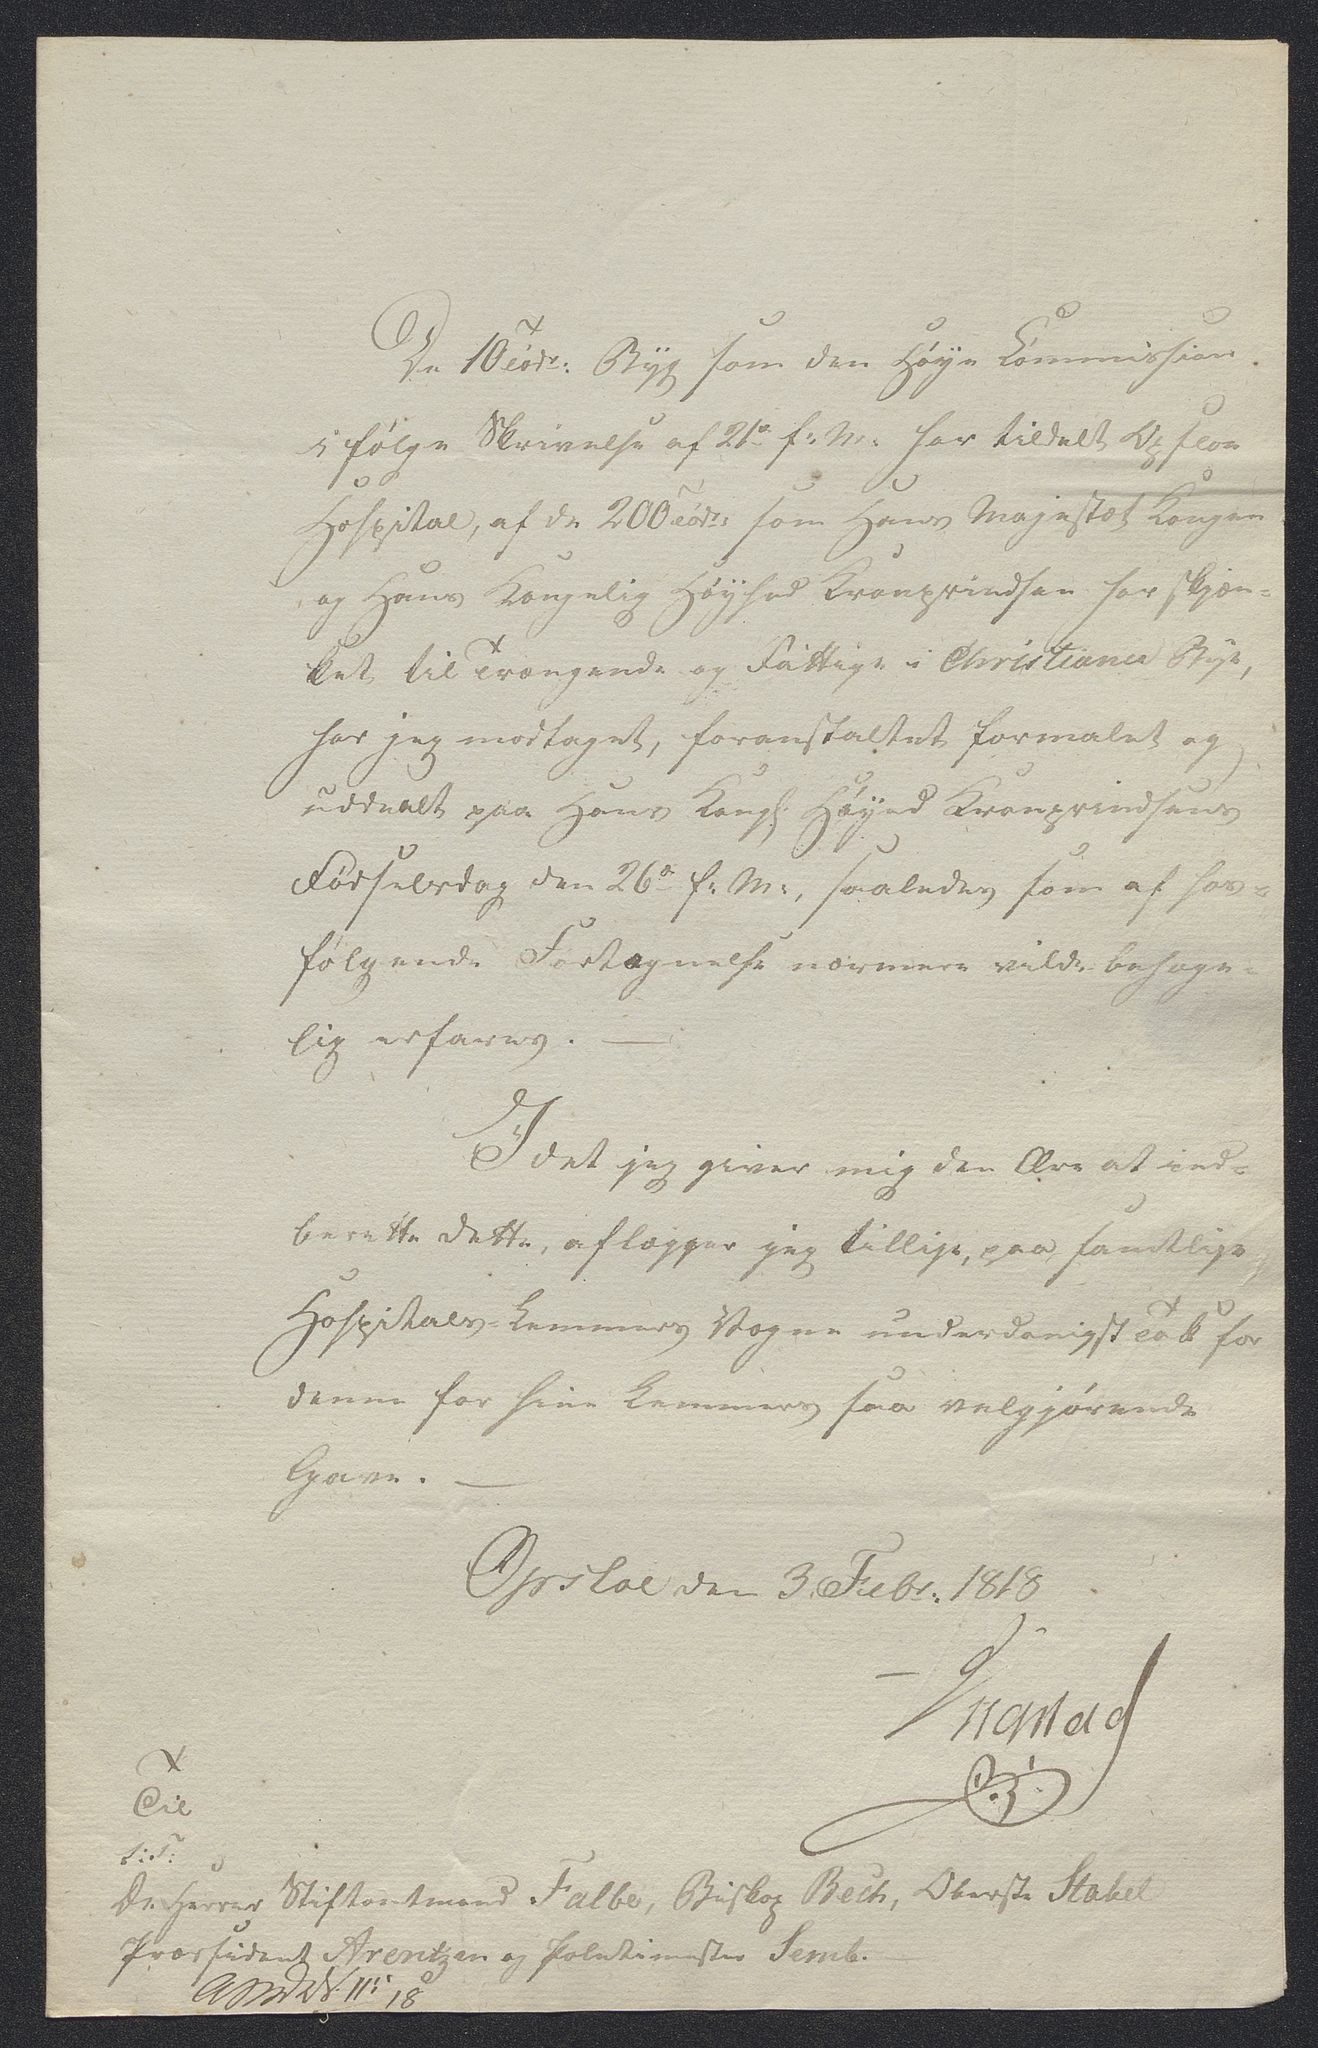 De 10 Tödr: Byg som den Høye Commission
i følge Skrivelse af 21de f: M: har tildelt Opsloe
Hospital, af de 200 Tödr: som Hans Majestæt Kongen
og Hans Kongelig Høyhed Kronprindsen har skjæn-
ket til Trængende og Fattige i Christiania Bye,
har jeg modtaget, foranstaltet formalet og
uddeelt paa Hans Kongl: Høyed Kronprindsens
Fødselsdag den 26de f: M:, saaledes som af hos-
følgende Fortegnelse nærmere vilde behage-
lig erfares. —
I det jeg giver mig den Ære at ind-
berette dette, aflægger jeg tillige, paa samtlige
Hospitals-Lemmers Vegne underdanigst Tak for
denne for hine Lemmers saa velgjørende
Gave. —
Opsloe den 3. Febr: 1818
Ingstad
Til
t: T:
De Herrer Stiftamtmand Falbe, Biskop Bech, Oberste Stabel
Præsident Arentzen og Politimester Semb.
18